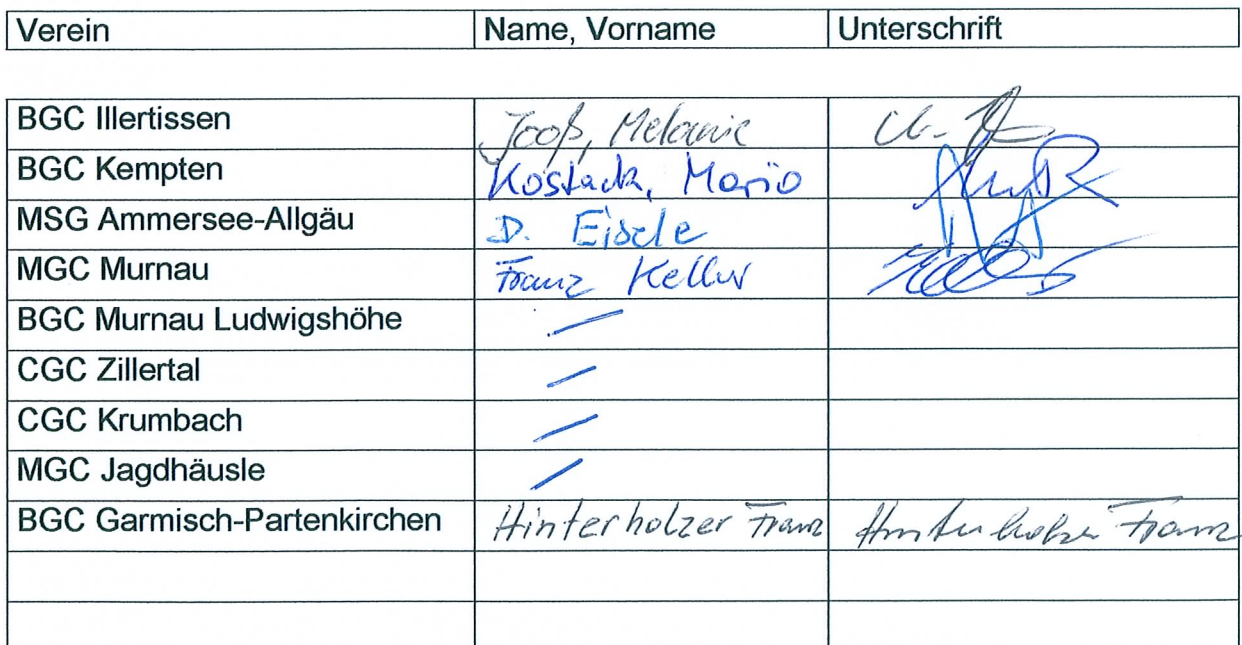 Verein Name, Vorname Unterschrift
BGC Illertissen Jooß, Melanie
BGC Kempten Kostack, Mario
MSG Ammersee-Allgäu D. Eisele
MGC Murnau Franz Keller
BGC Murnau Ludwigshöhe
CGC Zillertal
CGC Krumbach
MGC Jagdhäusle
BGC Garmisch-Partenkirchen Hinterholzer Franz Hinterholzer Franz